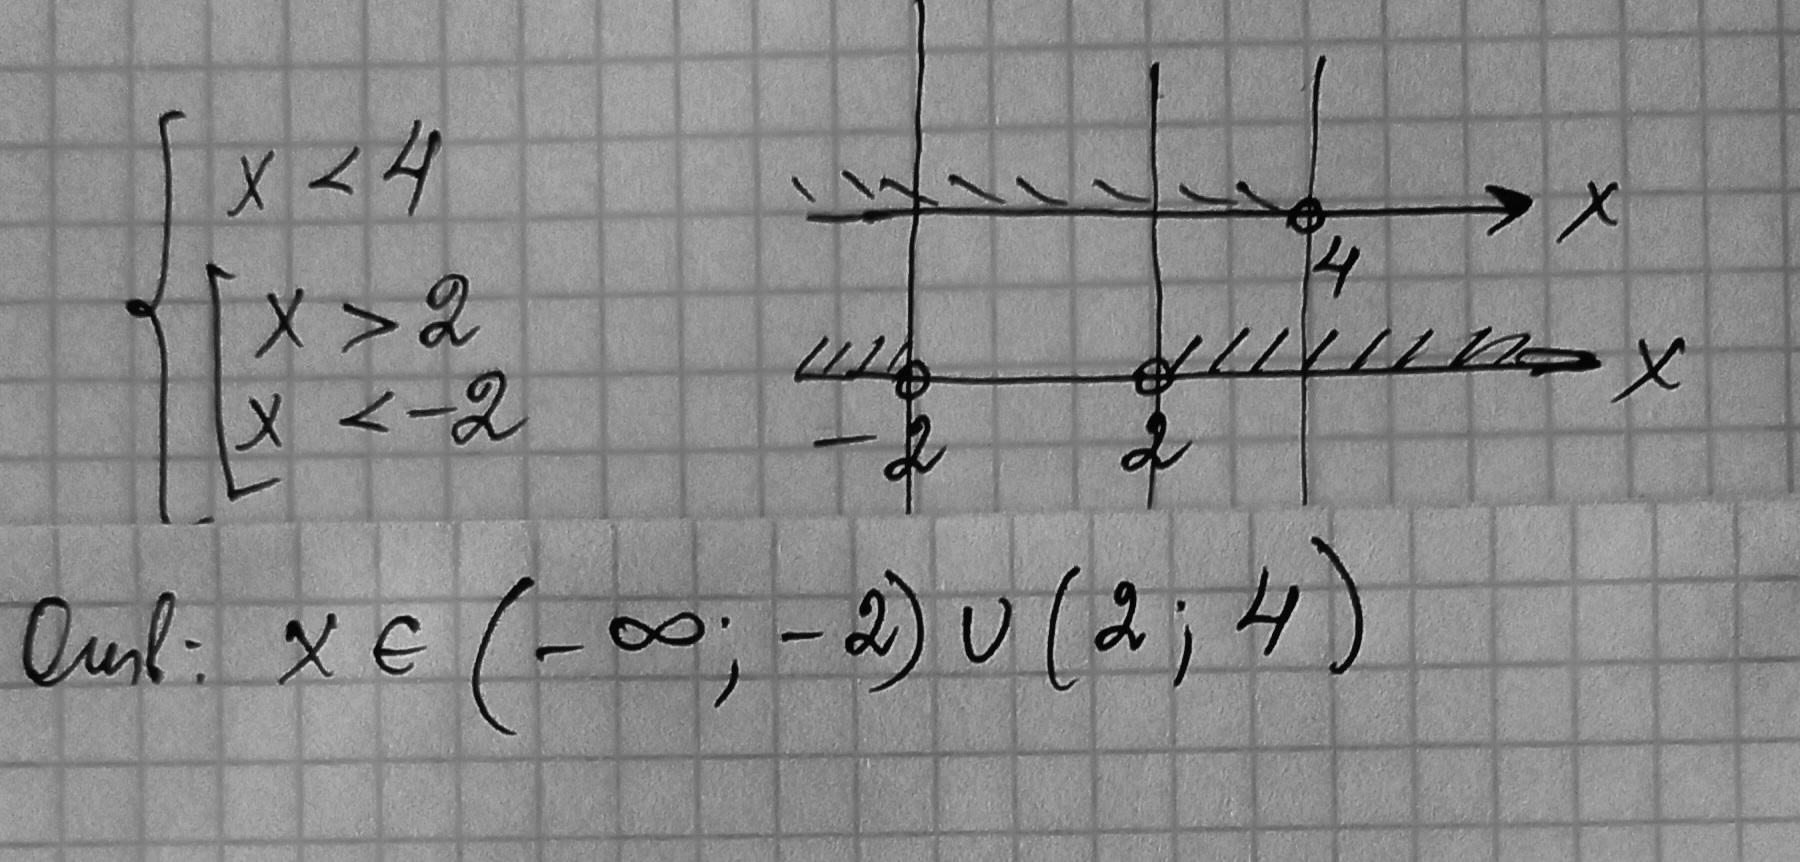 x < 4
x > 2
x < -2
x
4
x
-2
2
Ответ: x ∈ (-∞; -2) ∪ (2; 4)